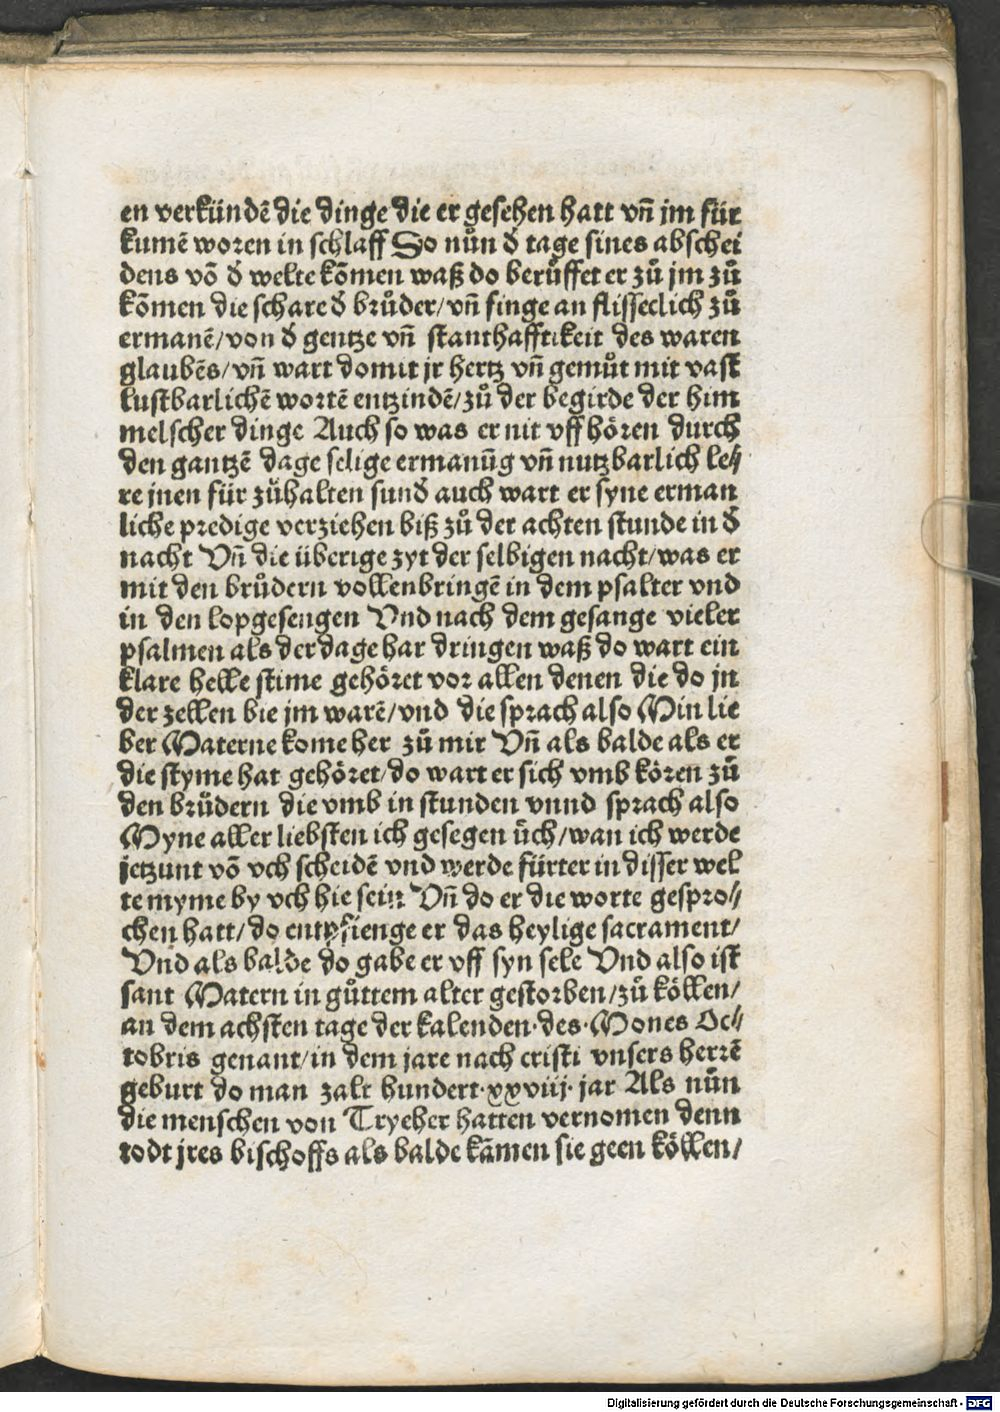 en verkündē die dinge die er gesehen hatt vñ jm für
kumē woren in schlaff So nůn d̕ tage sines abschei
dens võ d̕ welte kõmen waß do berůffet er zů jm zů
kõmen die schare d̕ brůder/ vñ finge an flisseclich zů
ermanē/ von d̕ gentze vñ stanthafftikeit des waren
glaubēs/ vñ wart domit jr hertz vñ gemůt mit vast
lustbarlichē wortē entzindē/ zů der begirde der him
melscher dinge Auch so was er nit vff hören durch
den gantzē dage selige ermanūg vñ nutzbarlich le⸗
re jnen für zůhalten sund̕ auch wart er syne erman
liche predige verziehen biß zů der achten stunde in d̕
nacht Vñ die überige zyt der selbigen nacht/ was er
mit den brůdern vollenbringē in dem psalter vnd
in den lopgesengen Vnd nach dem gesange vieler
psalmen als der dage har dringen waß do wart ein
klare helle stime gehöret vor allen denen die do jn
der zellen bie jm warē/ vnd die sprach also Min lie
ber Materne kome her zů mir Vñ als balde als er
die styme hat gehöret/ do wart er sich vmb kören zů
den brůdern die vmb in stunden vnnd sprach also
Myne aller liebsten ich gesegen üch/ wan ich werde
jetzunt võ vch scheidē vnd werde fürter in disser wel
te myme by vch hie sein Vñ do er die worte gespro⸗
chen hatt/ do entpfienge er das heylige sacrament/
Vnd als balde do gabe er vff syn sele Vnd also ist
sant Matern in gůttem alter gestorben/ zů köllen/
an dem achsten tage der kalenden·des·Mones Oc⸗
tobris genant/ in dem jare nach cristi vnsers herrē
geburt do man zalt hundert·xxviij· jar Als nůn
die menschen von Tryeher hatten vernomen denn
todt jres bischoffs als balde kãmen sie geen köllen/
Digitalisierung gefördert durch die Deutsche Forschungsgemeinschaft - DFG